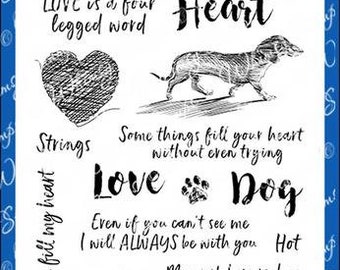 LOVE is a four
legged word
Heart
Strings
Some things fill your heart
without even trying
Love Dog
fill my heart
Even if you can't see me
I will ALWAYS be with you
Hot